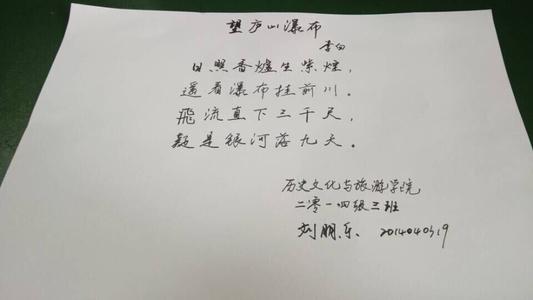 望庐山瀑布
李白
日照香爐生紫煙，
遥看瀑布挂前川。
飛流直下三千尺，
疑是银河落九天。
历史文化与旅游学院
二零一四级三班
刘朋乐、2014040319